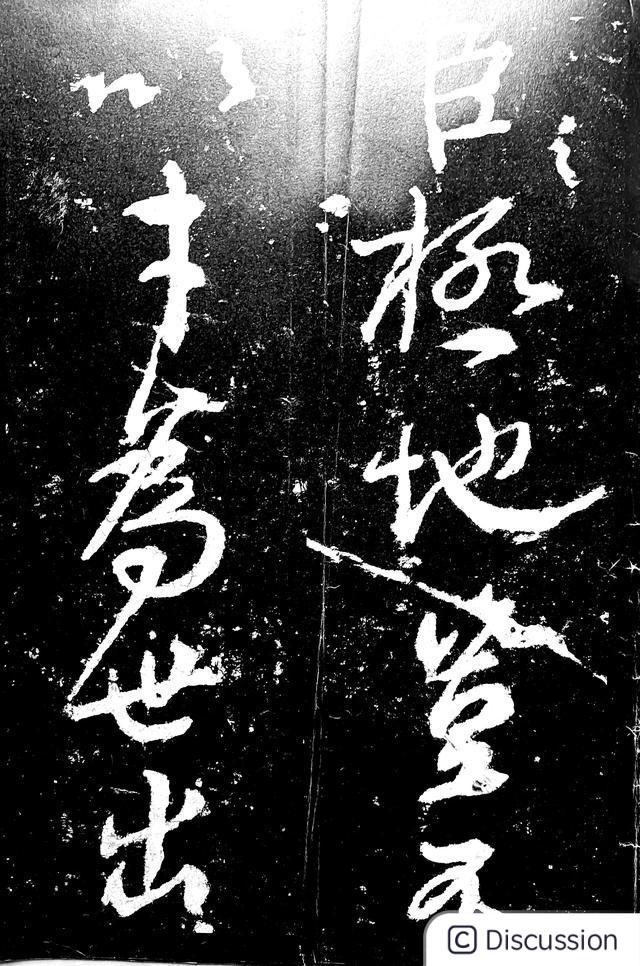 臣極地豈不
以才爲世出
© Discussion